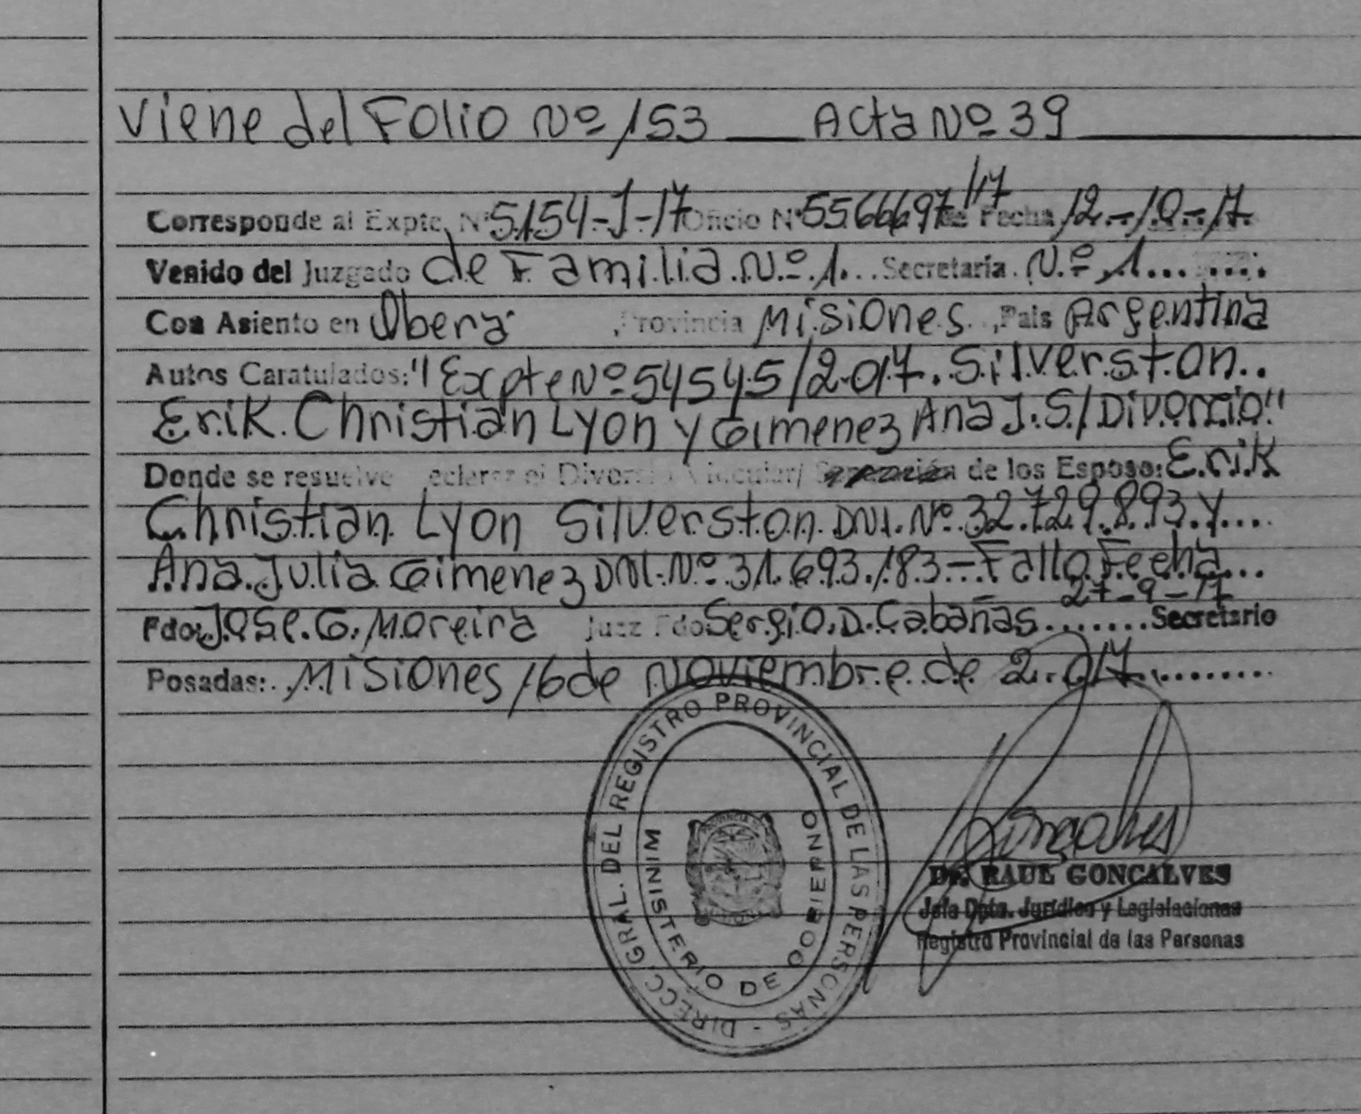 Viene del Folio Nº 153 ___ Acta Nº 39
Corresponde al Expte. Nº 5154-J-17 Oficio Nº 5566697/17 de Fecha 12-10-17.
Venido del Juzgado de Familia Nº 1... Secretaría Nº 1.......
Con Asiento en Oberá, Provincia Misiones, País Argentina
Autos Caratulados: "Expte Nº 54545/2017. Silverston..
Erik Christian Lyon y Gimenez Ana J. S/Divorcio"
Donde se resuelve eclarar el Divorcio Vincular/ Separación de los Esposo: Erik
Christian Lyon Silverston DNI. Nº 32.729.893 y....
Ana Julia Gimenez DNI. Nº 31.693.183 – Fallo Fecha...
27-9-17
Fdo: Jose. G. Moreira Juez Fdo Sergio. D. Cabañas.......Secretario
Posadas: Misiones 16 de Noviembre de 2.017..........
DIRECC. GRAL. DEL REGISTRO PROVINCIAL DE LAS PERSONAS -
MINISTERIO DE GOBIERNO
Dr. RAUL GONCALVES
Jefe Dpto. Jurídico y Legislaciones
Registro Provincial de las Personas